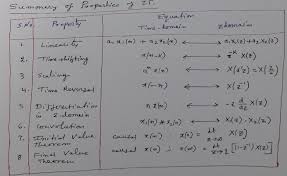 Summary of Properties of ZT.
S.No. Property Equation
Time-domain Z-domain
1. Linearity a₁x₁(n) + a₂x₂(n) ⟷ a₁X₁(z) + a₂X₂(z)
2. Time shifting x(n-k) ⟷ z⁻ᵏ X(z)
3. Scaling aⁿ x(n) ⟷ X(a⁻¹z) = X(z/a)
4. Time Reversal x(-n) ⟷ X(z⁻¹)
5. Differentiation in z-domain n x(n) ⟷ -z d/dz X(z)
6. Convolution x₁(n) * x₂(n) ⟷ X₁(z) . X₂(z)
7. Initial Value Theorem causal x(n) x(0) = lt z→∞ X(z)
8 Final Value Theorem causal x(n) x(∞) = lt z→1 [1-z⁻¹) X(z)]